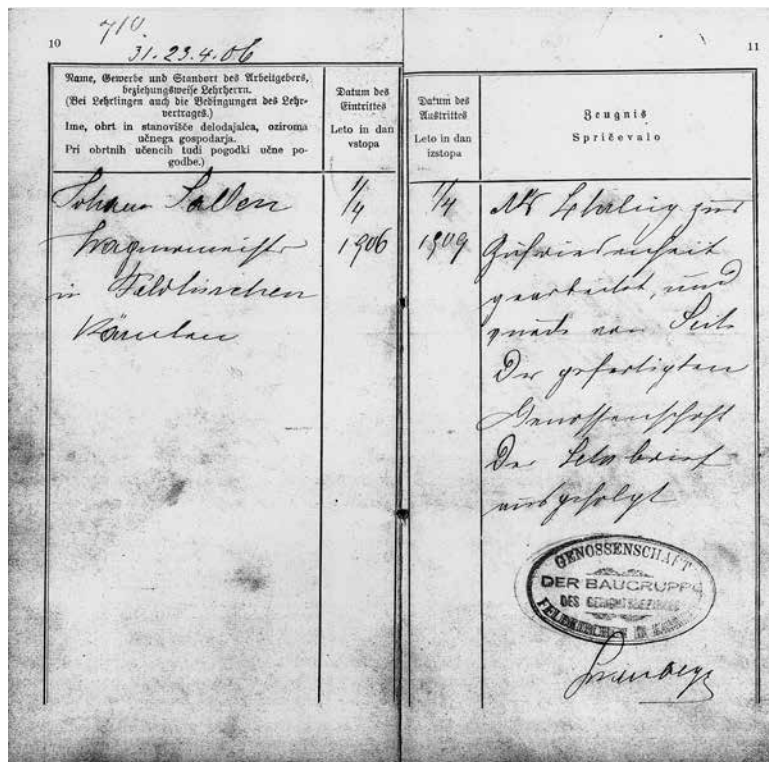 10
710.
31.23.4.06
Name, Gewerbe und Standort des Arbeitgebers,
beziehungsweise Lehrherrn.
(Bei Lehrlingen auch die Bedingungen des Lehr-
vertrages.)
Ime, obrt in stanovišče delodajalca, oziroma
učnega gospodarja.
Pri obrtnih učencih tudi pogodki učne po-
godbe.)
Datum des
Eintrittes
Leto in dan
vstopa
Johann
Wagnermeister
in Feldkirchen
Kärnten
1/4
1906
11
Datum des
Austrittes
Leto in dan
izstopa
Zeugnis
Spričevalo
1/4
1909
Als Lehrling zur
Zufriedenheit
gearbeitet, und
von Seite
Der gefertigten
Genossenschaft
Der Lehrbrief
ausgefolgt
GENOSSENSCHAFT
DER BAUGRUPPE
DES GERICHTSBEZIRKES
FELDKIRCHEN IN KÄRNTEN